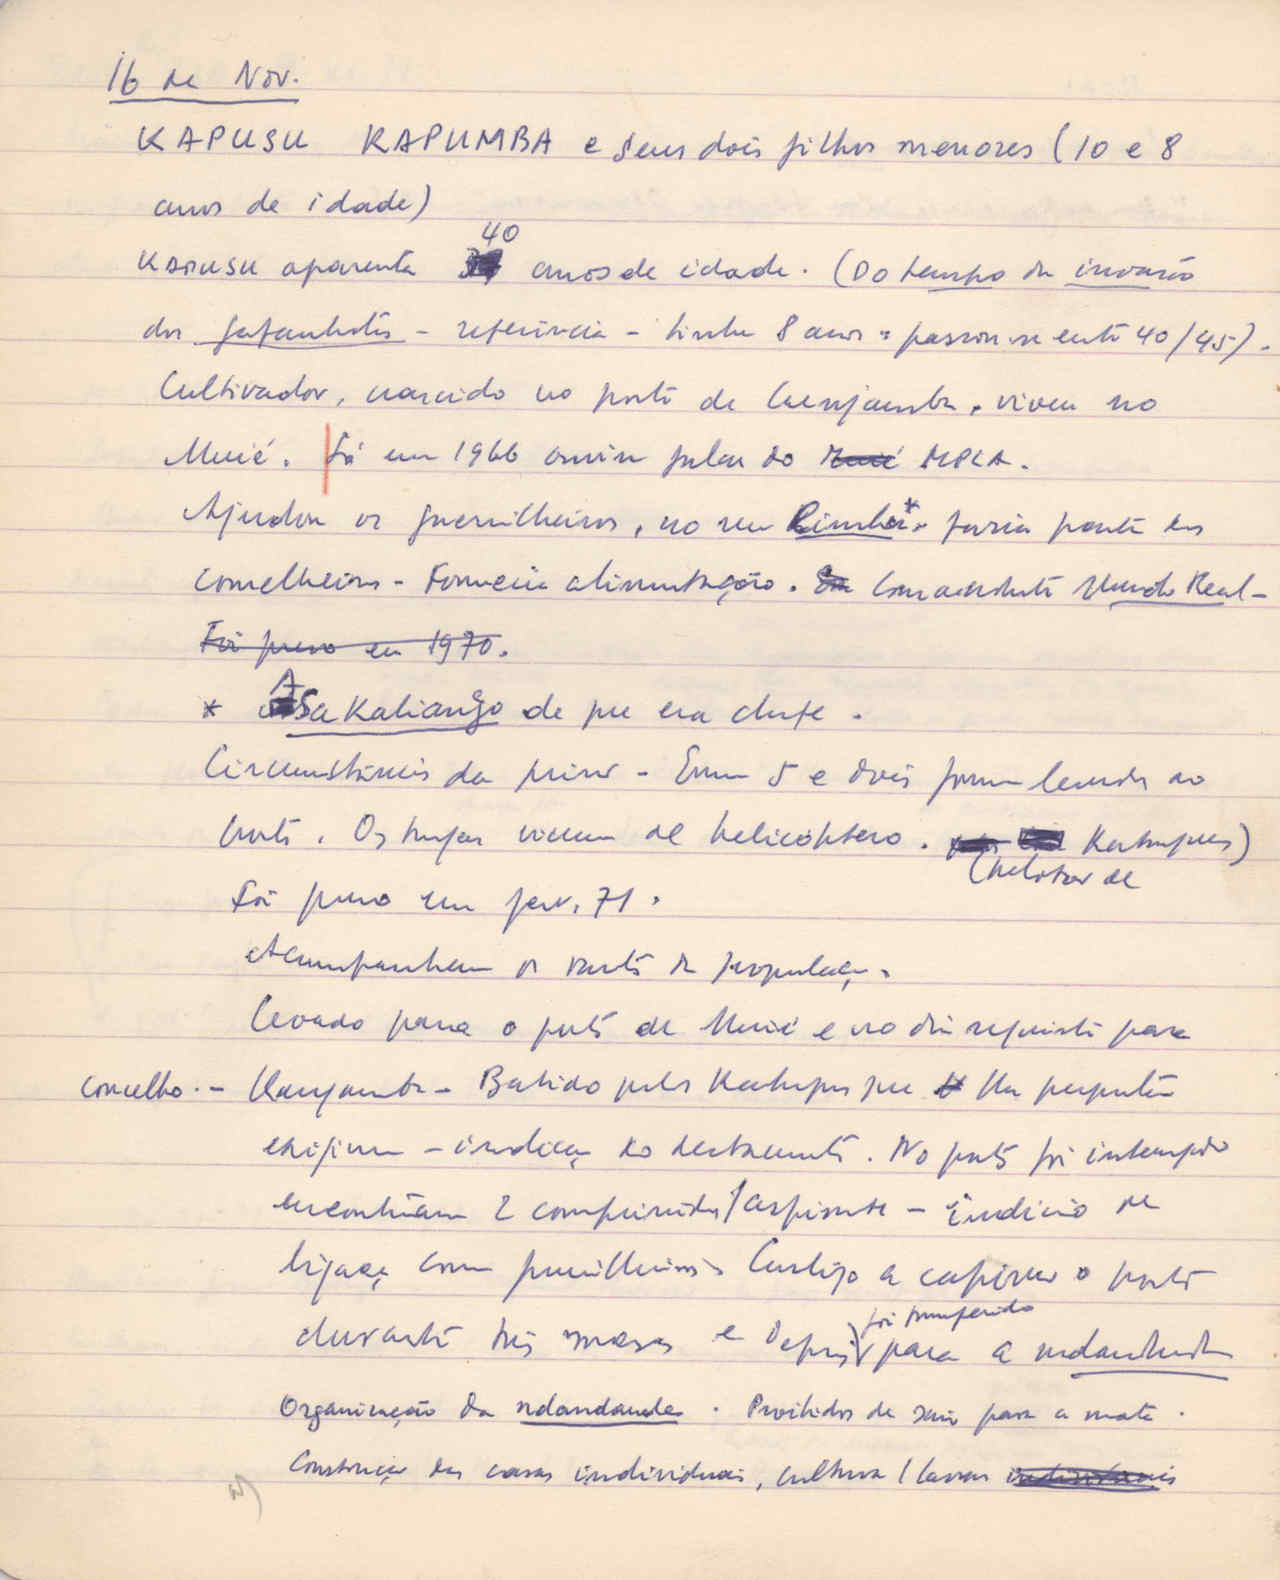 16 de Nov.
KAPUSU KAPUMBA e seus dois filhos menores (10 e 8
anos de idade)
40
KAPUSU aparenta anos de idade. (Do tempo da invasão
dos gafanhotos - referência - tinha 8 anos = passou-se entre 40/45).
Cultivador, nascido no posto de Cangamba, viveu no
Muié. Já em 1966 ouviu falar do Muié MPLA.
Ajudou os guerrilheiros, no seu Limbo*. fazia parte dos
conselheiros - Fornecia alimentação. Comandante Mundo Real -
Foi preso em 1970.
* A Sa Kaliango de que era chefe.
Circunstâncias da prisão - Eram 5 e dois foram levados ao
posto. Os tropas vieram de helicóptero. Katangas)
(helitrans de
Foi preso em fev. 71.
Acompanhava o resto da população.
Levado para o posto de Muié e no dia seguinte para
concelho. - Kangamba - Batido pelos Katangas que lhe perguntavam
exigiam - indicação do destacamento. No posto foi interrogado
encontraram 2 comprimidos/aspirina - indício de
ligação com guerrilheiros. Castigo a capinar o posto
foi transferido
durante três meses e depois para a ndandanda
Organização da ndandanda. Proibidos de sair para a mata.
Construção das casas individuais, cultura (lavras individuais